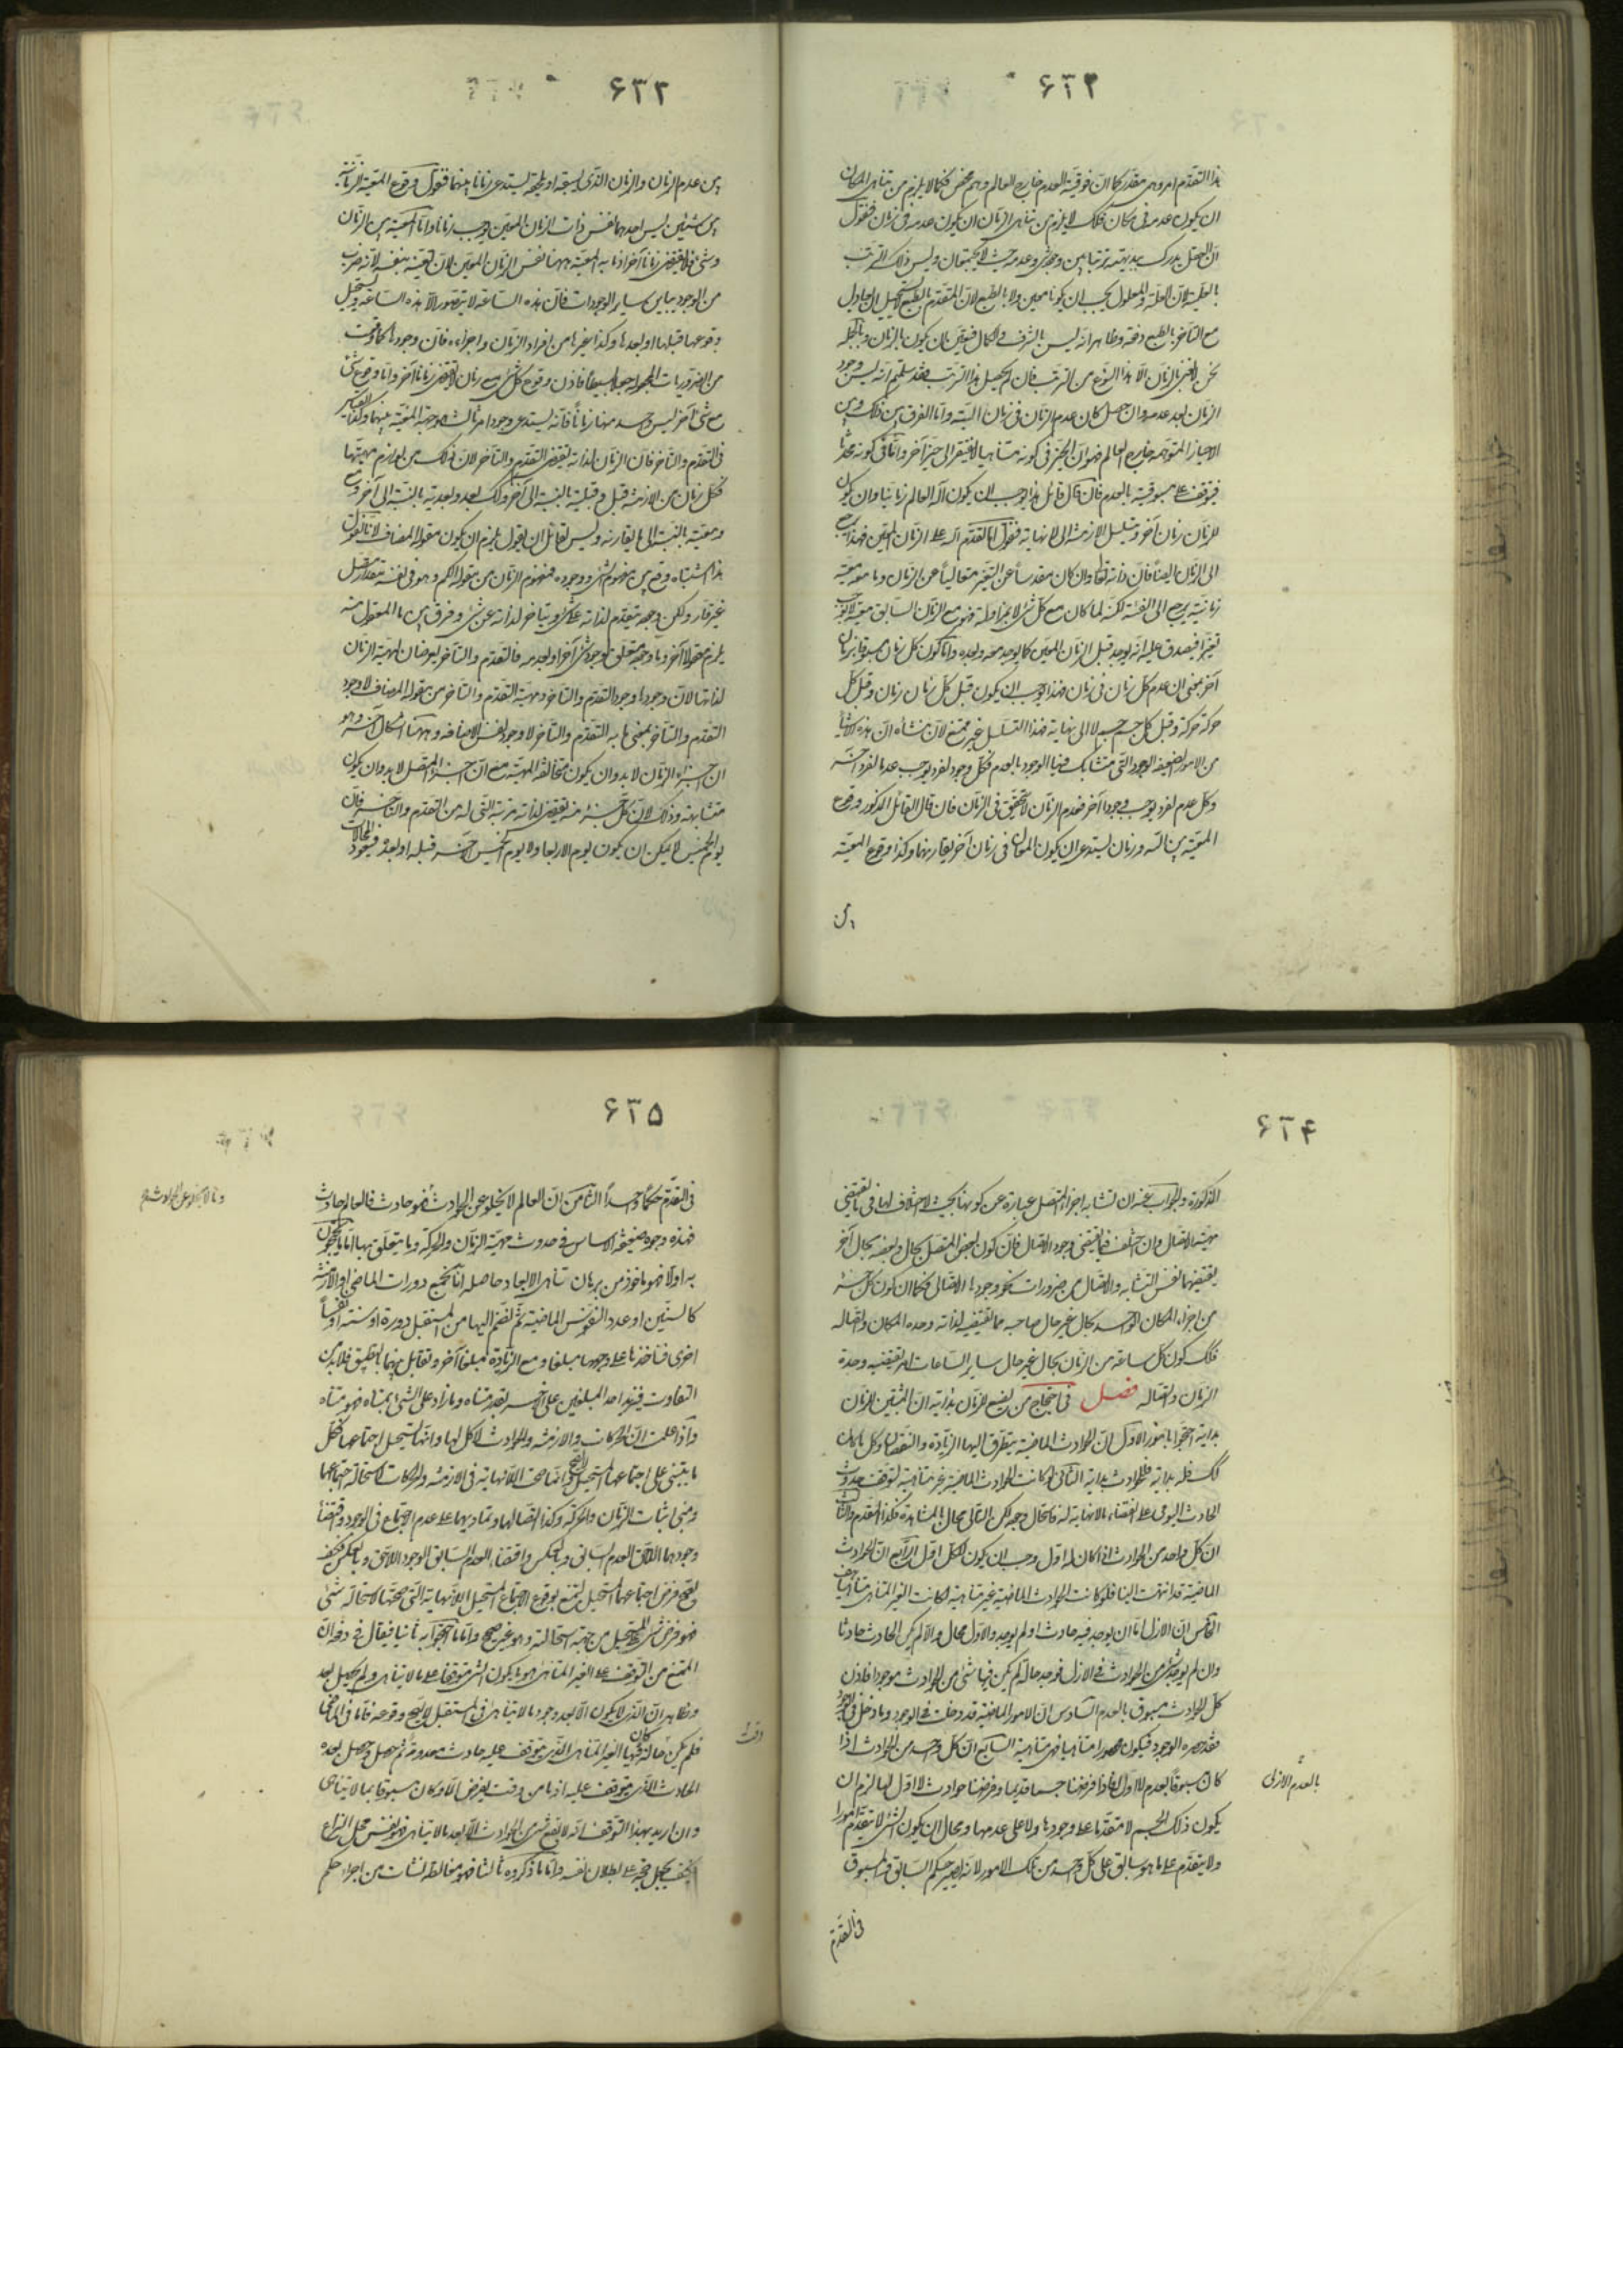 ۶۳۲
هذا التقدم امر وهمى مقدر كما ان فوقية العدم خارج العالم وهم محض فكما لا يلزم من تناهى المكان
ان يكون عدمه فى مكان فكذلك لا يلزم من تناهى الزمان ان يكون عدمه فى زمان فنقول
ان العقل يدرك بديهة ترتبا بين وجود شىء وعدمه بحيث لا يجتمعان وليس ذلك الترتب
بالعلية لان العلة والمعلول يجب ان يكونا معين ولا بالطبع لان المتقدم بالطبع لا يستحيل ان
مع المتأخر بالطبع دفعة وظاهر انه ليس بالشرف والكمال فتعين بان يكون بالزمان وبالجملة
نحن لا نعنى بالزمان الا هذا النوع من الترتب فان لم يحصل هذا الترتب فقد سلمتم انه ليس وجود
الزمان بعد عدمه وان حصل كان عدم الزمان فى زمان البتة واما الفرق بين ذلك وبين
الاحياز المتوهمة خارج العالم فهو ان الحيز فى كونه متناهيا لا يفتقر الى حيز آخر واما فى كونه محدثا
فيتوقف على مسبوقيته بالعدم فان قال قائل هذا يوجب ان يكون اله العالم زمانيا وان يكون
للزمان زمان آخر ويتسلسل الازمنة الى لا نهاية فنقول اما تقدم اله على الزمان المعين فهذا يرجع
الى الزمان ايضا فان ذاته تعالى وان كان مقدسا عن التغير متعاليا عن الزمان وما معه معية
زمانية يرجع الى الفيئة لكنه لما كان مع كل شىء لا بمزاولة فهو مع الزمان السابق معية لا توجب
تغيرا فيصدق عليه انه يوجد قبل الزمان المعين كما يوجد معه وبعده واما كون كل زمان مسبوقا بزمان
آخر بمعنى ان عدم كل زمان فى زمان فهذا يوجب ان يكون قبل كل زمان زمان وقبل كل
حركة حركة وقبل كل جسم جسم لا الى نهاية فهذا التسلسل غير ممتنع لان منشأه ان هذه الاشياء
من الامور الضعيفة الوجود التى متشابك فيها الوجود بالعدم فكل وجود لفرد يوجب عدما لفرد آخر
وكل عدم لفرد يوجب وجودا آخر فعدم الزمان لا يتحقق فى الزمان فان قال القائل المذكور وقوع
المعية بين اله وزمان يستدعى ان يكون المعان فى زمان آخر يقارنهما وكذا وقوع المعية
بين
۶۳۳
بين عدم الزمان والزمان الذى يسبقه او يلحقه يستدعى زمانا بينهما فنقول وقوع المعية الزمانية
بين شيئين ليس احدهما نفس ذات الزمان المعين يوجب زمانا واما المعية بين الزمان
وشىء فلا يقتضى زمانا آخر اذ ما به المعية ههنا نفس الزمان المعين لان تعينه بنفسه لانه ضرب
من الوجود يباين لساير الوجودات فان هذه الساعة لا يتصور الا هذه الساعة ويستحيل
وقوعها قبلها او بعدها وكذا غيرها من افراد الزمان واجزاءه فان وجودها كما وقعت
من الضروريات المجعولة جعلا بسيطا فاذن وقوع كل شىء مع زمان لا يقتضى زمانا آخر واما وقوع شىء
مع شىء آخر ليس واحد منها زمانا فانه يستدعى وجود امر ثالث هو جهة المعية بينهما وكذا القياس
فى التقدم والتأخر فان الزمان لذاته يقتضى التقدم والتأخر لان ذلك من لوازم مهيتها
فكل زمان من الازمنة قبل وقبلية بالنسبة الى آخر وكذلك بعد وبعدية بالنسبة الى آخر ومع
ومعية بالنسبة الى ما يقارنه وليس لقائل ان يقول يلزم ان يكون مقولة المضاف لانا نقول
هذا اشتباه وقع بين مفهوم الشىء ووجوده فمفهوم الزمان من مقولة الكم وهو فى نفسه مقدار متصل
غير قار ولكن وجوده يتقدم لذاته على شىء ويتأخر لذاته عن شىء وفرق بين ما المعقول منه
يلزم معقولا آخر وما وجوده يتعلق بوجود شىء آخر او بعدمه فالتقدم والتأخر يعرضان لمهية الزمان
لذاتها لان وجودها وجود التقدم والتأخر ومهية التقدم والتأخر من مقولة المضاف لا وجود
التقدم والتأخر بمعنى ما به التقدم والتأخر لا وجود نفس الاضافة وههنا اشكال آخر وهو
ان اجزاء الزمان لا بد وان يكون متخالفة المهية مع ان اجزاء المتصل لا بد وان يكون
متشابهة وذلك لان كل جزء منه يقتضى لذاته مرتبة التى له من التقدم والتأخر فان
يوم الخميس لا يمكن ان يكون يوم الاربعا ولا يوم الخميس الآخر قبله او بعده فيعود المحالات
۶۳۴
المذكورة والجواب عنه ان تشابه اجزاء المتصل عبارة عن كونها بحيث لا اختلاف لها فى ما يقتضى
مهية الاتصال وان اختلفت فيما يقتضى وجود الاتصال فان كون بعض المتصل بحال وبعضه بحال آخر
يقتضيهما نفس التشابه والاتصال من ضرورات نحو وجودها الاتصالى فكما ان كون كل جزء
من اجزاء المكان الواحد بحال غير حال صاحبه مما يقتضيه لذاته وحدة المكان واتصاله
فكذلك كون كل ساعة من الزمان بحال غير حال ساير الساعات امر يقتضيه وحدة
الزمان واتصاله فصل فى احتجاج من يضع للزمان بداية ان المثبتين للزمان
بداية احتجوا بامور الاول ان الحوادث الماضية يتطرق اليها الزيادة والنقصان وكل ما كان
كذلك فله بداية فللحوادث بداية الثانى لو كانت الحوادث الماضية غير متناهية لتوقف حدوث
الحادث اليومى على انقضاء ما لا نهاية له فاستحال وجوده لكن التالى محال بالمشاهدة فكذا المقدم والثالث
ان كل واحد من الحوادث اذا كان له اول وجب ان يكون للكل اول الرابع ان الحوادث
الماضية قد انتهت الينا فلو كانت الحوادث الماضية غير متناهية لكانت الغير المتناهى متناهيا هف
الخامس ان الازل اما ان يوجد فيه حادث او لم يوجد والاول محال والا لم يكن الحادث حادثا
وان لم يوجد شىء من الحوادث فى الازل فوجد حالة لم يكن فيها شىء من الحوادث موجودا فاذن
كل الحوادث مسبوق بالعدم السادس ان الامور الماضية قد دخلت فى الوجود وما دخل فى الوجود
فقد حصره الوجود فيكون محصورا متناهيا فهى متناهية السابع ان كل واحد من الحوادث اذا
كان مسبوقا بعدم لا اول له فاذا فرضنا جسما قديما وفرضنا حوادث لا اول لها لزم ان
بالعدم الازلى
يكون ذلك الجسم لا متقدما على وجودها ولا على عدمها ومحال ان يكون الشىء لا يتقدم امورا
ولا يتقدم على ما هو سابق على كل واحد من تلك الامور لانه يصير حكم السابق والمسبوق
فى التقدم
۶۳۵
فى التقدم حكما واحدا الثامن ان العالم لا يخلو عن الحوادث فهو حادث فالعالم حادث
وما لا يخلو عن الحوادث فهو
فهذه وجوه ضعيفة الاساس فى حدوث مهية الزمان والحركة وما يتعلق بها اما ما يحتجون
به اولا فهو ماخوذ من برهان تناهى الابعاد حاصله انا نجمع دورات الماضى او الازمنة
كالسنين او عدد النفوس الماضية ثم نضم اليها من المستقبل دورة او سنة او نفسا
اخرى فناخذها على وجهها مبلغا ومع الزيادة مبلغا آخر ونقابل بينهما بالتطبيق فلا بد من
التفاوت فيزيد احد المبلغين على الآخر بقدر متناه وما زاد على الشىء بمتناه فهو متناه
واذا علمت ان الحركات والازمنة والحوادث لا كل لها وانها يستحيل اجتماعها فكل
ما يبتنى على اجتماعها المستحيل لا يصح انما صحت اللانهاية فى الازمنة والحركات لاستحالة اجتماعها
ومبنى اثبات الزمان والحركة وكذا اتصالها وتماديها على عدم الاجتماع فى الوجود واقتضاء
وجودها اللاحق العدم السابق وبالعكس واقتضاء العدم السابق الوجود اللاحق وبالعكس فكيف
يصح فرض اجتماعها المستحيل ليمتنع بوقوع الاجتماع المستحيل اللانهاية التى صحتها لاستحالة شىء
فهو فرض شىء المستحيل من جهة استحالته وهو غير صحيح واما ما احتجوا به ثانيا فيقال فى دفعه ان
الممتنع من التوقف على الغير المتناهى هو ما يكون الشىء متوقفا على ما لا يتناهى ولم يحصل بعد
وظاهر ان الذى لا يكون الا بعد وجود ما لا يتناهى فى المستقبل لا يصح وقوعه فاما فى الماضى
فلم يكن حالة كان فيها الغير المتناهى الذى يتوقف عليه حادث معدومة ثم حصل وحصل بعده
الحادث الذى يتوقف عليه اذ ما من وقت يفرض الا وكان مسبوقا بما لا يتناهى
وان اريد بهذا التوقف انه لا يقع شىء من الحوادث الا بعد ما لا يتناهى فهو نفس محل النزاع
فكيف يجعل حجة على ابطال نفسه واما ما ذكروه ثالثا فهو مغالطة نشأت من اجراء حكم